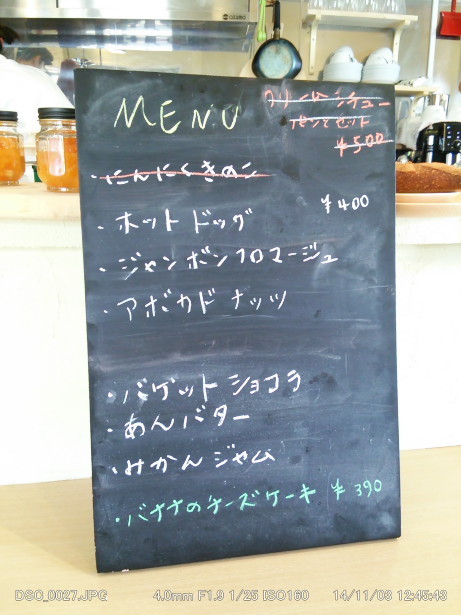 MENU
クリームシチュー
パンとセット
¥500
・にんにくきのこ
・ホットドッグ ¥400
・ジャンボンフロマージュ
・アボカドナッツ
・バゲットショコラ
・あんバター
・みかんジャム
・バナナのチーズケーキ ¥390
DSC_0027.JPG 4.0mm F1.9 1/25 ISO160 14/11/03 12:45:43